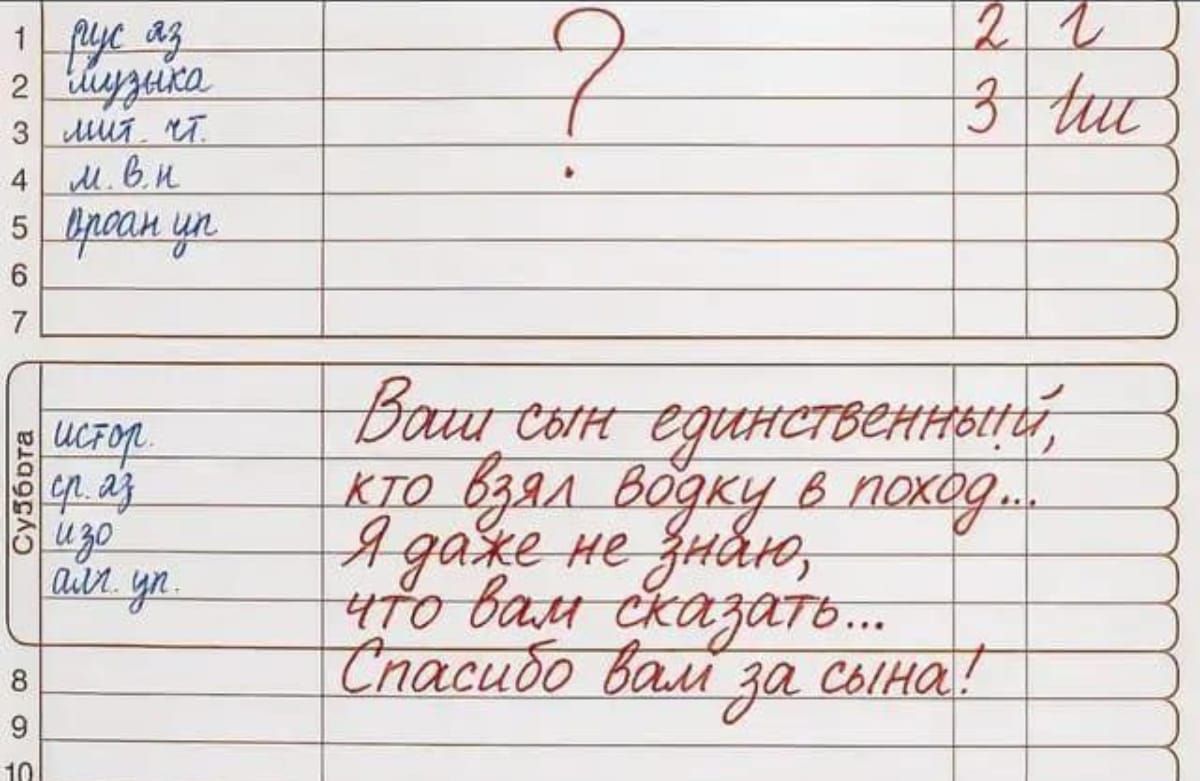 1 рус яз ? 2
2 музыка
3 лит. чт. 3
4 м.в.н
5
6
7
Суббота
истор.
ср. яз
изо
алг. уп.
Ваш сын единственный,
кто взял водку в поход...
Я даже не знаю,
что вам сказать...
Спасибо вам за сына!
8
9
10